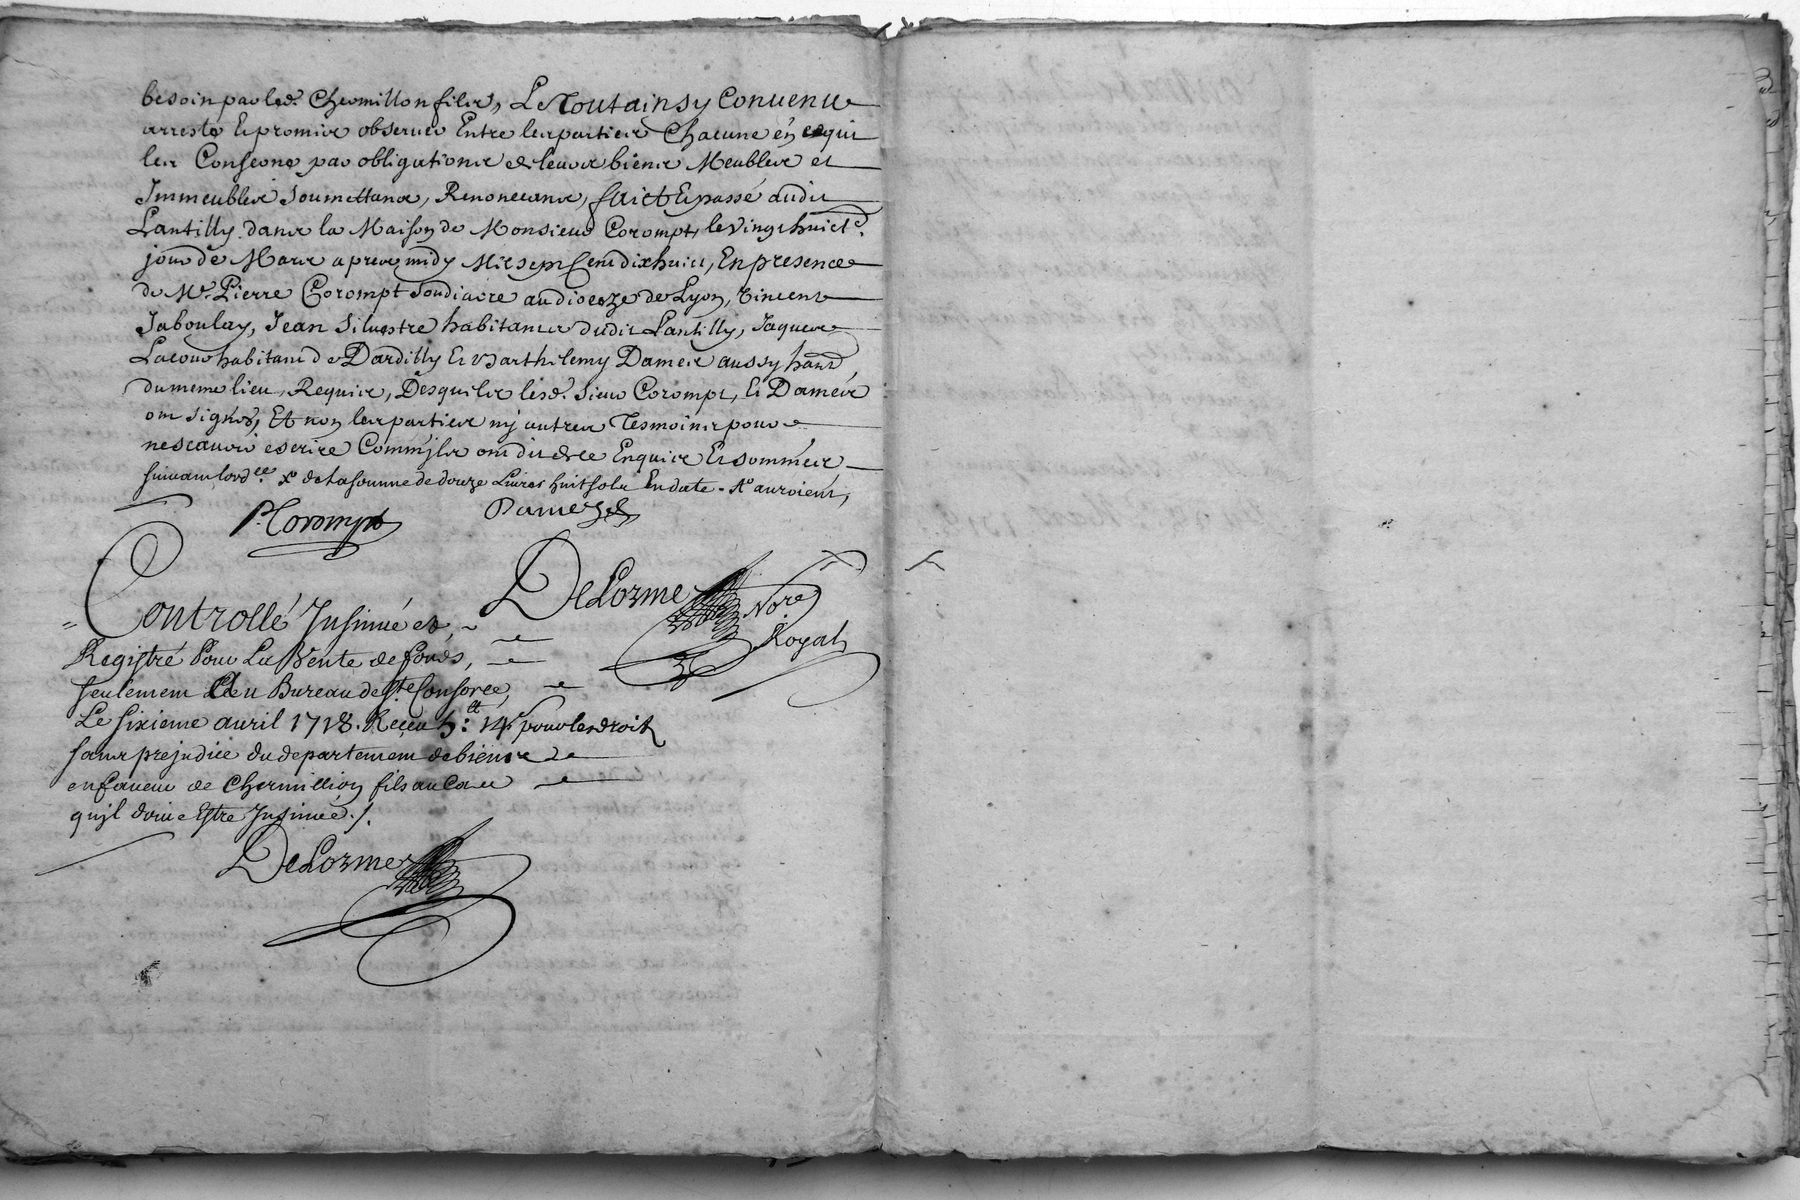 besoin par led. Chermillon filz, Le Tout ainsy Convenu
arresté Et promis observer Entre les parties Chacune en ce qui
les Conserne par obligations de leurs biens Meubles et
Immeubles Soumettans, Renoncans, faict Et passé audit
Lantilly dans la Maison de Monsieur Corompt, le vingt huictᵉ.
jour de Mars apres midy Mil sept Cent dix huict, En presence
de Mʳ. Pierre Corompt Soudiacre au dioceze de Lyon, Vincent
Jaboulay, Jean Silvestre habitants dudit Lantilly, Jaques
Lacour habitant de Dardilly Et Barthelemy Dameis aussy habᵗ
du meme lieu, Requis, Desquels lesd. Sieur Corompt, Et Dameis
ont signés, Et non les parties ny autres Tesmoins pour
ne scavoir escrire Comm'jls ont dit de ce Enquis Et sommés
suivant lordᶜᵉ. de la somme de douze Livres huit sols En date
P. Corompt
Dameis
DeLorme Noʳᵉ
Royal
Controllé Insinué et
Registré Pour La Vente de fonds,
seulement au Bureau de Sᵗᵉ Consorce,
Le sixieme avril 1718. Reçeu 5ᵗᵗ: 14ˢ pour les droits
sans prejudice du departement de biens
en faveur de Chermillion fils au Cas
qu'jl doive Estre Insinué ./.
DeLorme